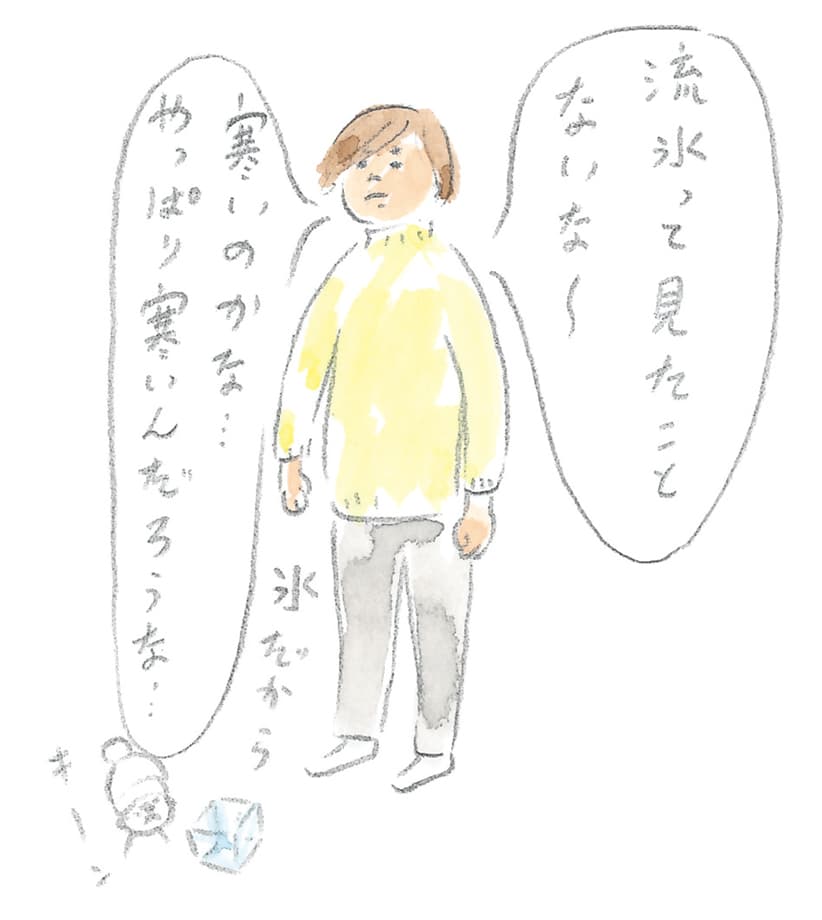 流氷って見たこと
ないな〜
寒いのかな…
やっぱり寒いんだろうな…
氷だから
キーン